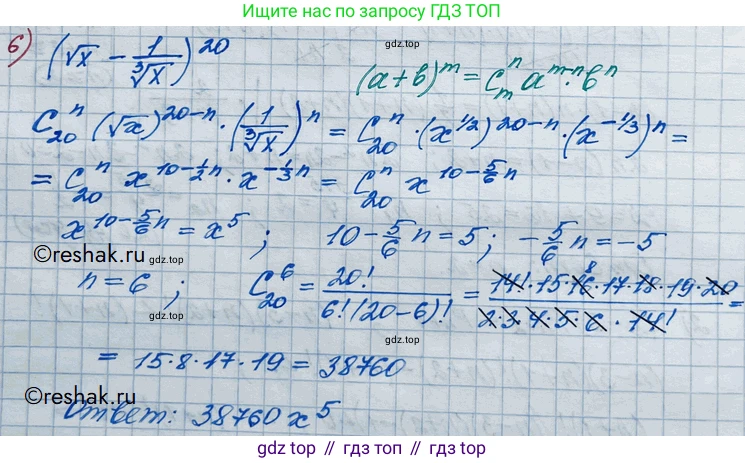 Ищите нас по запросу ГДЗ ТОП
б) (√x − 1/∛x)^20
гдз top
(a+b)^m = C_m^n a^(m-n) · b^n
C_20^n (√x)^(20−n) · (1/∛x)^n = C_20^n · (x^(1/2))^(20−n) · (x^(−1/3))^n =
= C_20^n x^(10−1/2n) · x^(−1/3n) = C_20^n x^(10−5/6n)
x^(10−5/6n) = x^5 ; 10−5/6n = 5; −5/6n = −5
©reshak.ru
гдз top
n = 6 ; C_20^6 = 20!/(6!(20−6)!) = (14!·15·16·17·18·19·20)/(2·3·4·5·6·14!) =
8
гдз top
= 15·8·17·19 = 38760
гдз top
©reshak.ru
Ответ: 38760 x^5
gdz top // гдз топ // гдз top